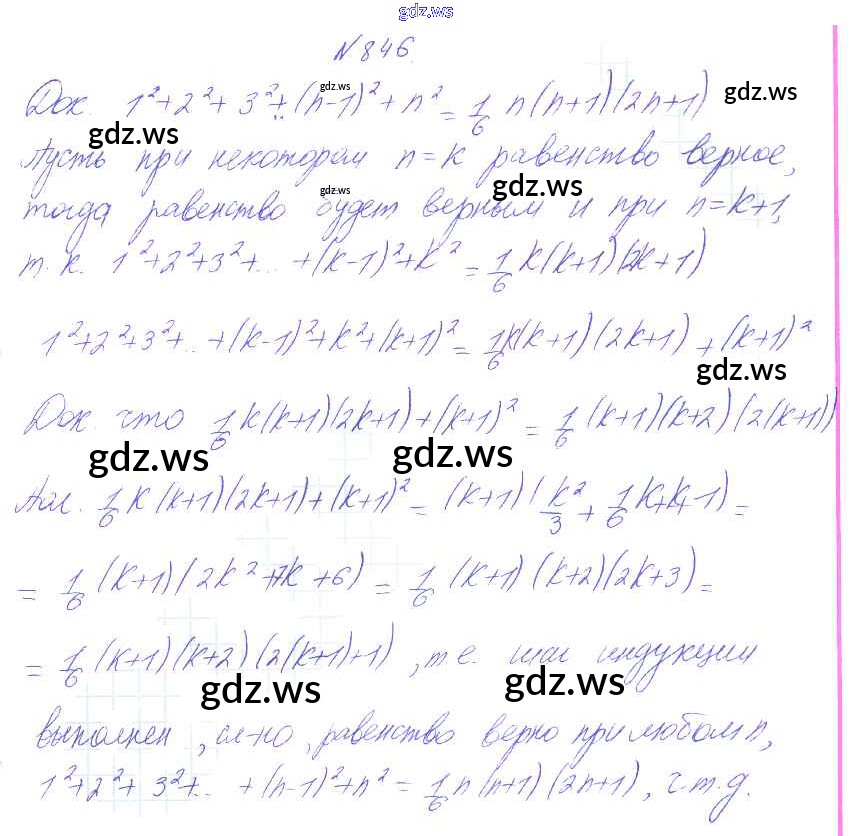 gdz.ws
N 846.
Док. 1²+2²+3²+...(n-1)²+n² = 1/6 n(n+1)(2n+1)
gdz.ws gdz.ws gdz.ws
Пусть при некотором n=k равенство верное,
gdz.ws gdz.ws
тогда равенство будет верным и при n=k+1,
т.к. 1²+2²+3²+... +(k-1)²+k² = 1/6 k(k+1)(2k+1)
1²+2²+3²+... +(k-1)²+k²+(k+1)² = 1/6 k(k+1)(2k+1) + (k+1)²
gdz.ws
Док. что 1/6 k(k+1)(2k+1)+(k+1)² = 1/6 (k+1)(k+2)(2(k+1))
gdz.ws gdz.ws
1/6 k(k+1)(2k+1)+(k+1)² = (k+1)(k²/3 + 1/6 k+k+1) =
= 1/6 (k+1)(2k²+7k+6) = 1/6 (k+1)(k+2)(2k+3) =
= 1/6 (k+1)(k+2)(2(k+1)+1), т.е. шаг индукции
gdz.ws gdz.ws
выполнен, сл-но, равенство верно при любом n,
1²+2²+3²+... +(n-1)²+n² = 1/6 n(n+1)(2n+1), ч.т.д.